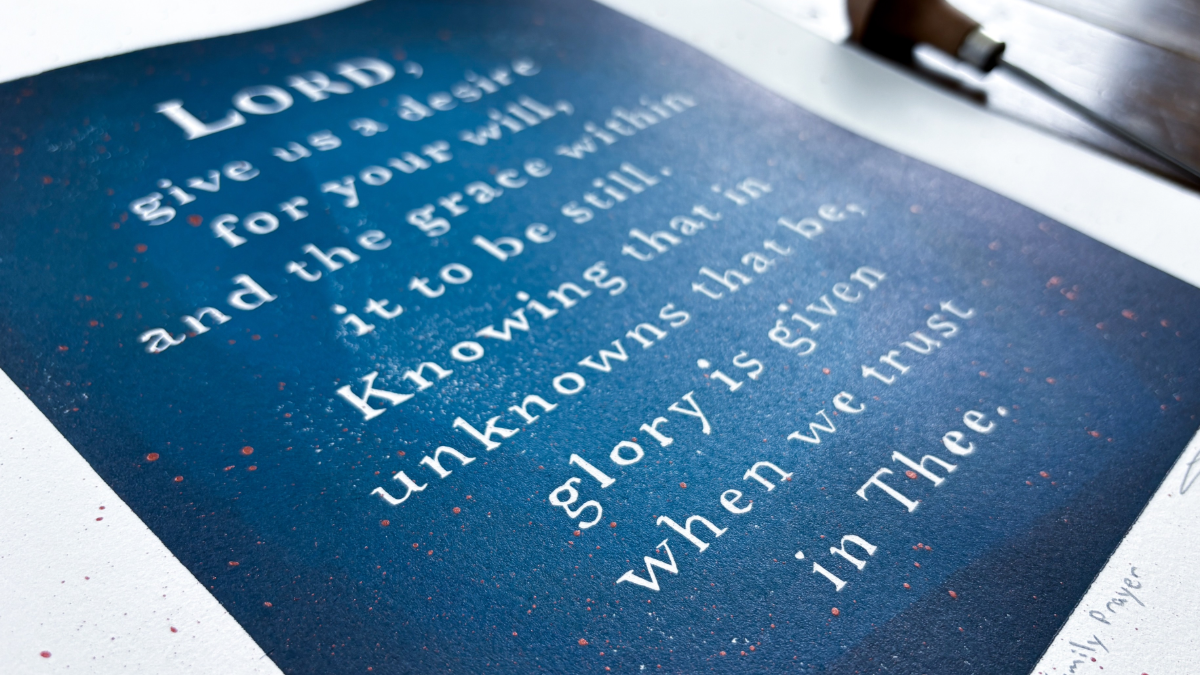 LORD,
give us a desire
for your will,
and the grace within
it to be still.
Knowing that in
unknowns that be,
glory is given
when we trust
in Thee.
Prayer